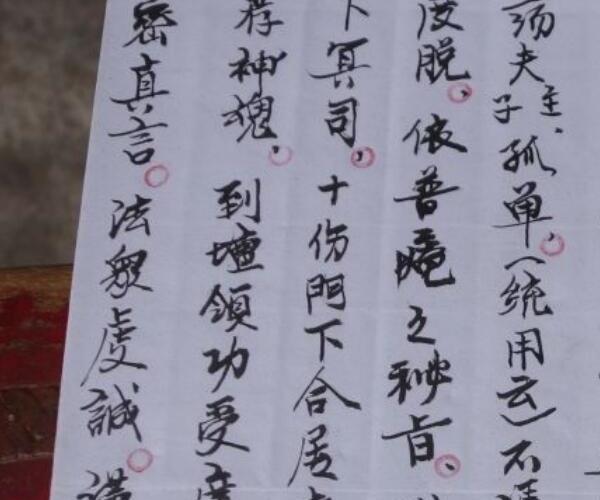 夫主子孤单，（统用云）不
度脱，依普庵之秘旨、
下冥司，十伤門下合居
荐神魂，到壇領功受度
密真言。法眾虔誠。